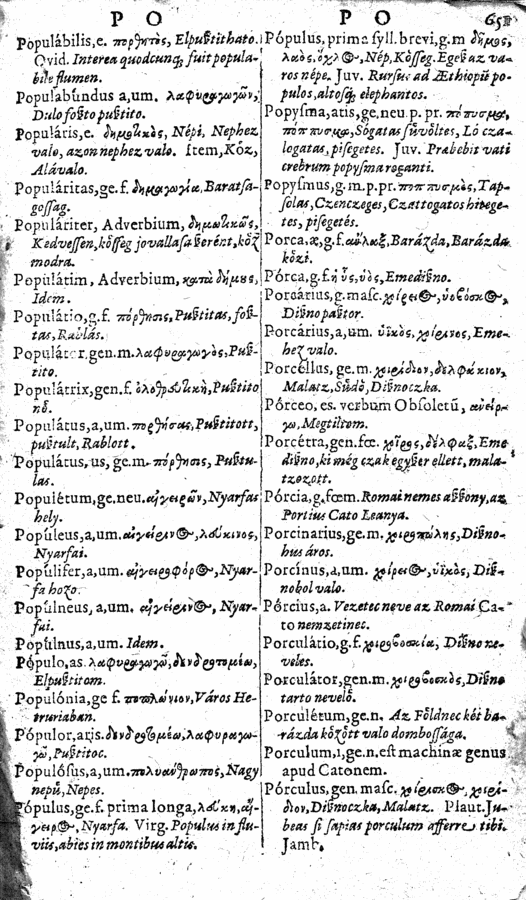 P O
Populábilis, e. πορθητὸς, Elpuſtithato.
Ovid. Interea quodcunq; fuit popula-
bile flumen.
Populabúndus a, um. λαφυραγωγῶν,
Dulo foſto puſtito.
Populáris, e. δημοτικὸς, Népi, Nephez
valo, azon nephez valo. Item, Kŏz,
Alávalo.
Popularitas, ge. f. δημαγωγία, Baratſa-
goſſag.
Populáriter, Adverbium, δημοτικῶς,
Kedveſſen, kŏſſeg jovallaſa ſzerént, kŏz
modra.
Populátim, Adverbium, κατὰ δήμους,
Idem.
Populátio, g. f. πόρθησις, Puſtitas, foſ-
tas, Rablás.
Populátor, gen. m. λαφυραγωγὸς, Puſ-
tito.
Populátrix, gen. f. Puſtito
nŏ.
Populátus, a, um. πορθήσας, Puſtitott,
puſtult, Rablott.
Populátus, us, ge. m. πόρθησις, Puſtu-
las.
Populétum, ge. neu. αἰγειρῶν, Nyarfas
hely.
Popúleus, a, um. αἰγείρινος, λεύκινος,
Nyarfai.
Populifer, a, um. αἰγειροφόρος, Nyar-
fa hozo.
Populneus, a, um. αἰγείρινος, Nyar-
fai.
Populnus, a, um. Idem.
Pópulo, as. λαφυραγωγῶ, δενδροτομέω,
Elpuſtitom.
Populónia, ge f. Város He-
truriaban.
Pópulor, aris. δενδροτομέω, λαφυραγω-
γῶ, Puſtitoc.
Populósus, a, um. πολυάνθρωπος, Nagy
nepŭ, Nepes.
Pópulus, ge. f. prima longa, λεύκη, αἴ-
γειρος, Nyarfa. Virg. Populus in flu-
viis, abies in montibus altis.
P O 651
Pópulus, prima ſyll. brevi, g. m δῆμος,
λαὸς, ὄχλος, Nép, Kŏſſeg. Egeſz az va-
ros népe. Juv. Rurſus ad Æthiopũ po-
pulos, altoſq; elephantos.
Popyſma, atis, ge. neu. p. pr. πόπυσμα,
πόππυσμα, Sŏgatas ſŭvŏltes, Ló cza-
logatas, piſegetes. Juv. Præbebit vati
crebrum popyſma roganti.
Popyſmus, g. m. p. pr. ποππυσμὸς, Tap-
ſolas, Czenczeges, Czattogatos hitege-
tes, piſegetés.
Porca, æ, g. f. αὖλαξ, Barázda, Barázda
kŏzi.
Pórca, g. f. ἡ ὗς, ὑὸς, Emediſzno.
Porcárius, g. maſc. χοίρειος, ὑοβοσκὸς,
Diſznopaſztor.
Porcárius, a, um. ὑϊκὸς, χοίρινος, Eme-
hez valo.
Porcéllus, ge. m. χοιρίδιον, δελφάκιον,
Malatz, Sŭdŏ, Diſznoczka.
Pórceo, es. verbum Obſoletũ, ἀπείρ-
γω, Megtiltom.
Porcétra, gen. fœ. χοῖρος, δέλφαξ, Eme
diſzno, ki még czak egyſzer ellett, mala-
tzozott.
Pórcia, g. fœm. Romai nemes aſſzony, az
Portius Cato Leanya.
Porcinarius, ge. m. χοιροπώλης, Diſzno-
hus áros.
Porcínus, a, um. χοίρειος, ὑϊκὸς, Diſz-
nobol valo.
Pórcius, a. Vezetec neve az Romai Ca-
to nemzetinec.
Porculátio, g. f. χοιροβοσκία, Diſzno ne-
veles.
Porculátor, gen. m. χοιροβοσκὸς, Diſzno
tarto nevelŏ.
Porculétum, ge. n. Az Fŏldnec két ba-
rázda kŏzŏtt valo domboſſága.
Porculum, i, ge. n. eſt machinæ genus
apud Catonem.
Pórculus, gen. maſc. χοιρίσκος, χοιρί-
διον, Diſznoczka, Malatz. Plaut. Ju-
beas ſi ſapias porculum afferre tibi.
Jamb.